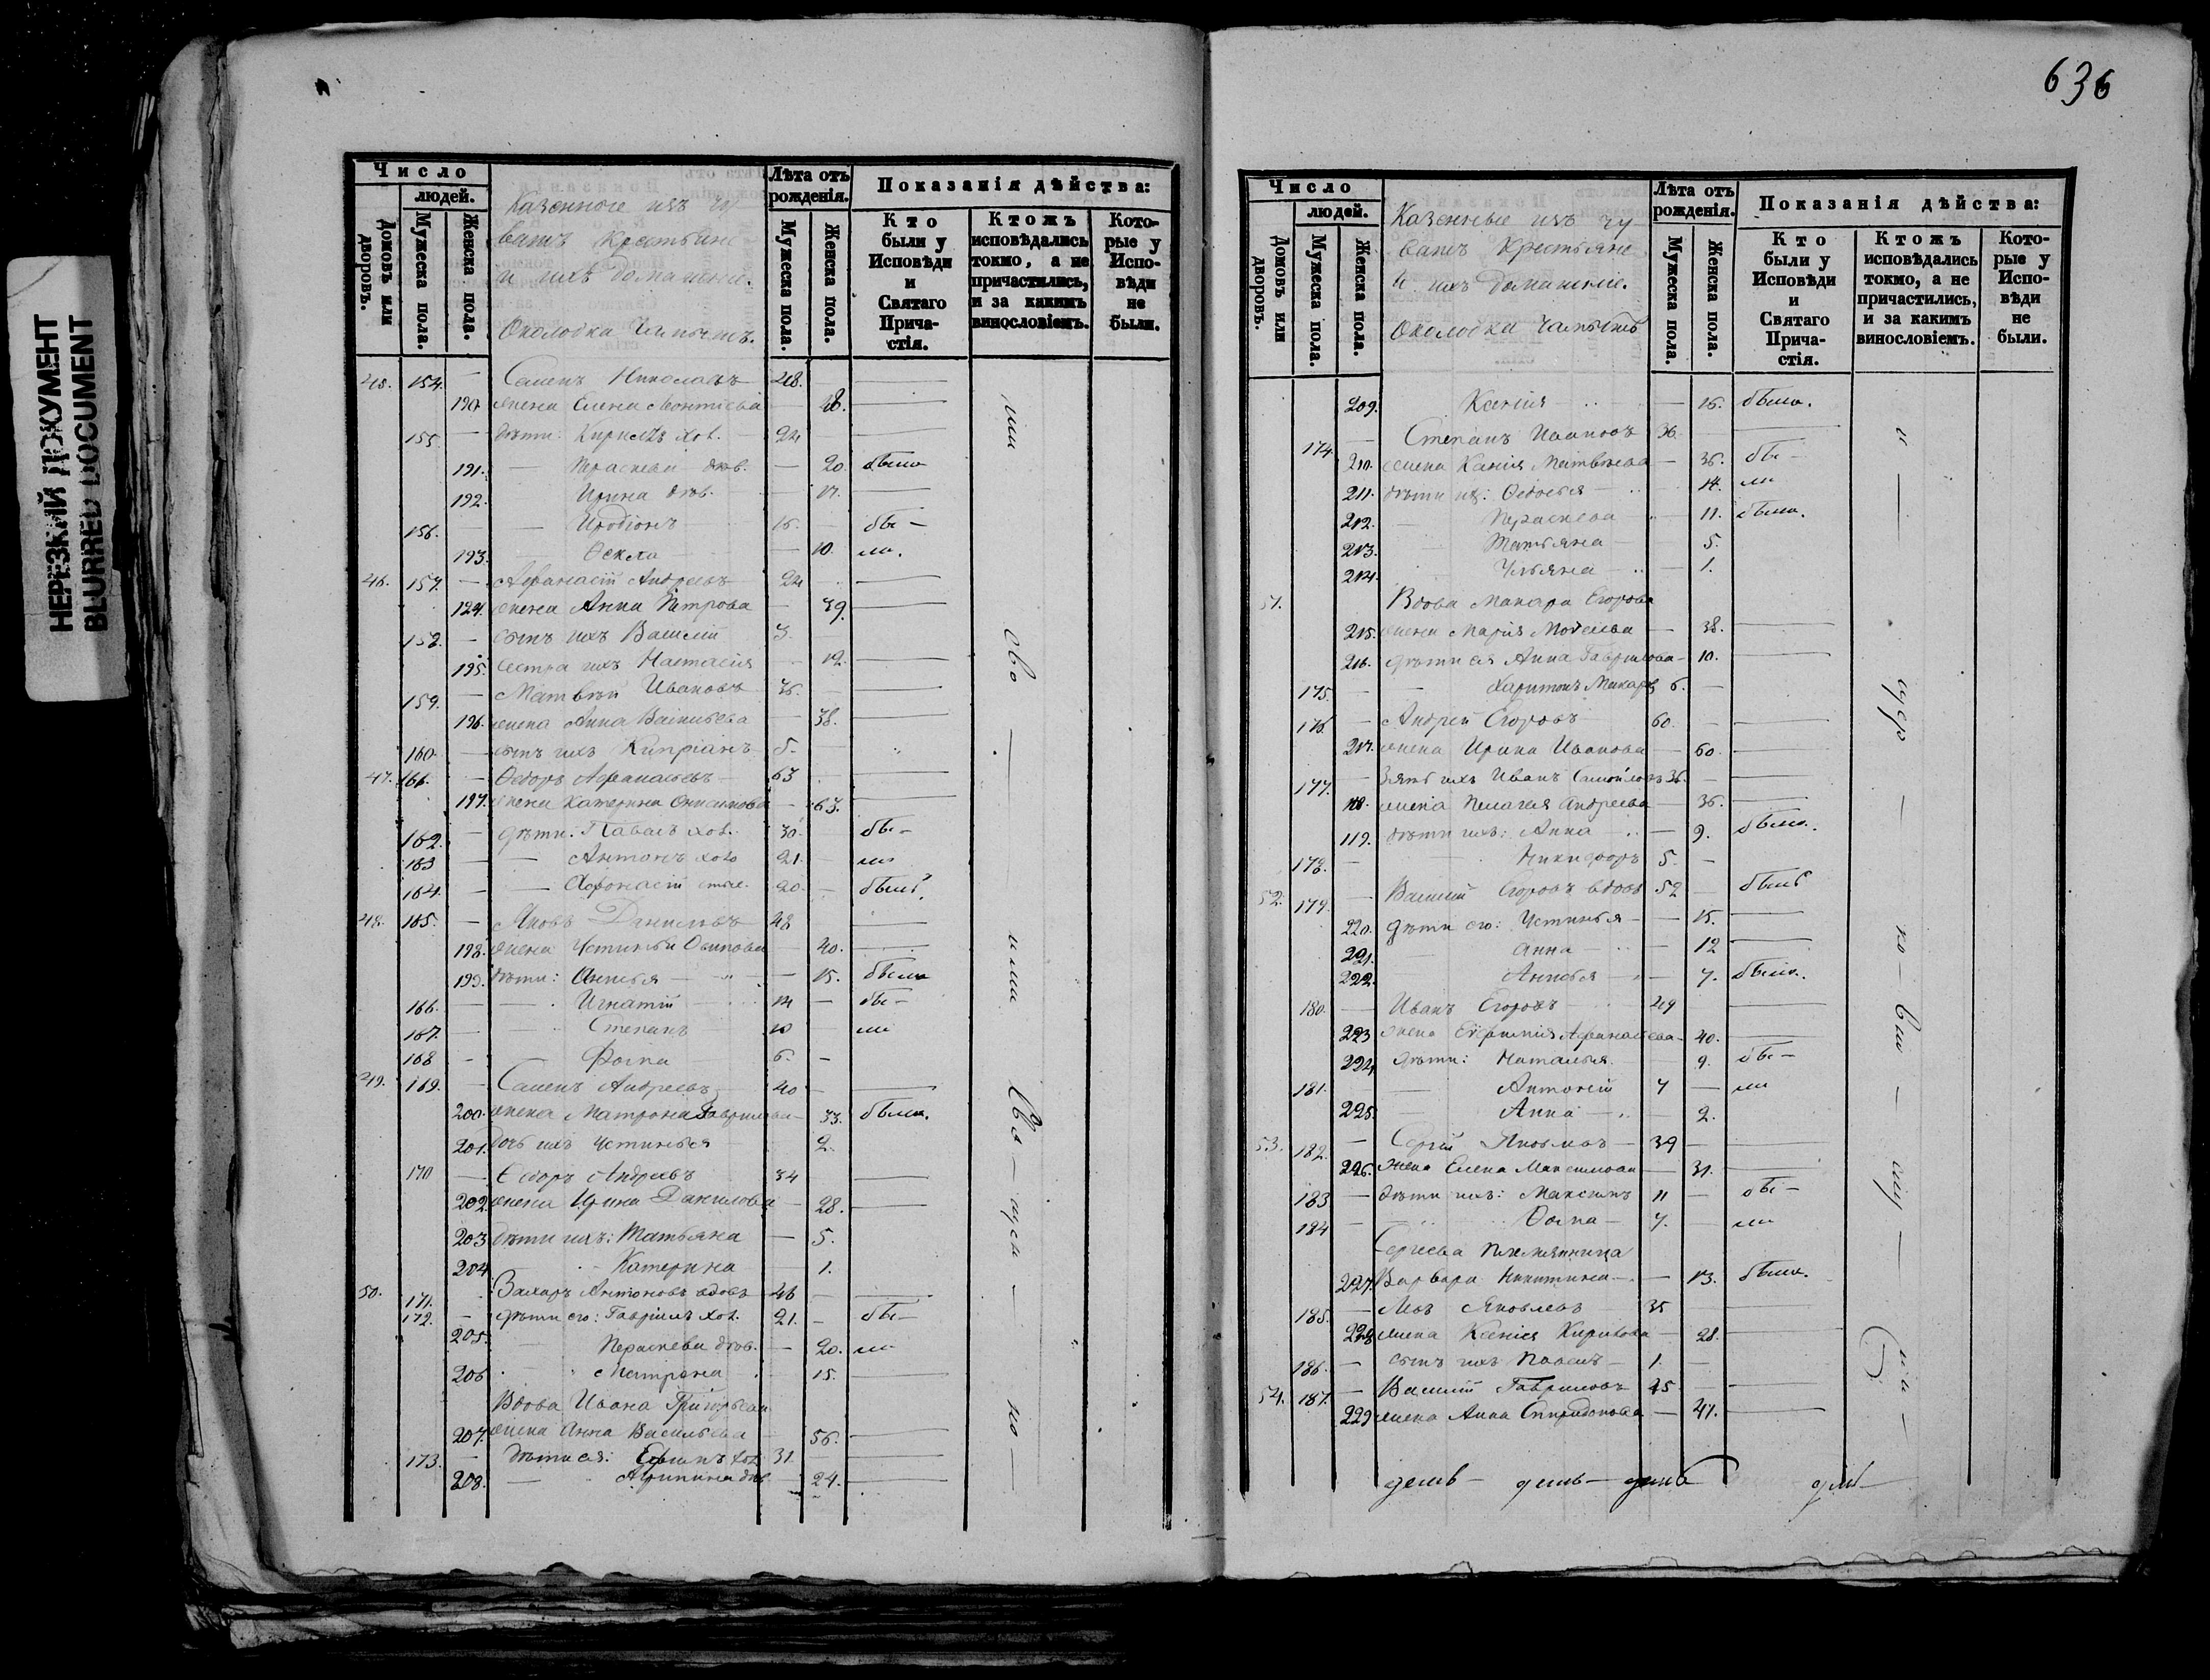 НЕРЕЗКИЙ ДОКУМЕНТ
BLURRED DOCUMENT
636
Число
людей.
Домовъ или дворовъ.
Мужеска пола.
Женска пола.
Казенные изъ чу
вашъ Крестьяне
и ихъ домашніе.
Околодка
Лѣта отъ рожденія.
Мужеска пола.
Женска пола.
Показанія дѣйства:
Кто были у Исповѣди и Святаго Прича-стія.
Ктожъ исповѣдались токмо, а не причастились, и за какимъ винословіемъ.
Кото-рые у Испо-вѣди не были.
45. 154. — Семенъ Николаевъ 48.
190. жена Елена Леонтіева — 48.
155. — дѣти: Кирилъ хол. 24
191. — Праскева дѣв. — 20. была
192. Ирина дѣв. — 17.
156. — Иродіонъ 15. — бы —
193. Ѳекла — 10. ли.
46. 157. — Афанасій Андреевъ 24
194. жена Анна Петрова — 39.
158. — сынъ ихъ Василій 3.
195. сестра ихъ Настасія 12.
159. — Матвѣй Ивановъ 36.
196. жена Анна Васильева — 38.
160. — сынъ ихъ Кипріанъ 5.
47. 161. — Ѳедоръ Афанасьевъ 63
197. жена Катерина Онисимова — 63.
162. — дѣти: Павелъ хол. 30. бы —
163 — Антонъ хол 21. ли
164. — Афонасій 20. — былъ
48. 165. — Яковъ Даниловъ 48
198. жена Устинья Осипова — 40.
199. дѣти: Анисья — 15. была
166. — Игнатій 14 — бы —
167. — Степанъ 10 ли
168 — Фома 6. —
49. 169. — Семенъ Андреевъ 40 —
200. жена Матрона Гаврилова — 33. была.
201. дочь ихъ Устинья 2.
170 — Ѳедоръ Андреевъ 34
202. жена Ирина Данилова — 28.
203 дѣти ихъ: Татьяна — 5.
204 Катерина 1.
50. 171. Захаръ Антоновъ вдовъ 46 —
172. — дѣти его: Гавріилъ хол. 21. — бы —
205. Праскева дѣв. — 20. ли
206 Матрона 15.
Вдова Ивана Григорьева
207. жена Анна Васильева — 56.
173. — дѣти ея: Ефимъ хол 31.
208. — Агрипина дѣв — 24.
Число
людей.
Домовъ или дворовъ.
Мужеска пола.
Женска пола.
Казенные изъ чу
вашъ Крестьяне
и ихъ домашніе.
Околодка
Лѣта отъ рожденія.
Мужеска пола.
Женска пола.
Показанія дѣйства:
Кто были у Исповѣди и Святаго Прича-стія.
Ктожъ исповѣдались токмо, а не причастились, и за какимъ винословіемъ.
Кото-рые у Испо-вѣди не были.
209. Ксенія — 16. была.
174. — Степанъ Ивановъ 36.
210. жена Ксенія Матвѣева — 36. бы —
211. дѣти ихъ: Ѳедосья — 14. ли
212. Праскева 11. была.
213. Татьяна — 5.
214. Ульяна — 1.
51. Вдова Макара Егорова
215. жена Марія Моѵсеева — 38.
216. дѣти ея Анна Гаврилова — 10.
175. — Харитонъ Макаровъ 6. —
176. — Андрей Егоровъ 60. —
217. жена Ирина Иванова — 60.
177. — Зять ихъ Иванъ Самойловъ 36. —
118. жена Пелагея Андреева — 36.
119. дѣти ихъ: Анна — 9. была.
178. — Никифоръ 5. —
52. 179. — Василій Егоровъ вдовъ 52 — былъ
220. дѣти его: Устинья — 15.
221. Анна — 12
222. Анисья — 7. была.
180. — Иванъ Егоровъ 49
223 жена Евфимія Афанасьева — 40.
224 дѣти: Наталья 9. бы —
181. — Антоній 4 — ли
225. Анна — 2.
53. 182. — Сергій Яковлевъ — 39 —
226. жена Елена Максимова — 31.
183 — дѣти ихъ: Максимъ 11 — бы —
184 — Ѳома — 7. — ли
Сергеева племянница
227. Варвара Никитина — 13. была.
185. — Левъ Яковлевъ 35
228 жена Ксенія Кирилова — 28.
186. — сынъ ихъ Павелъ — 1. —
54. 187. — Василій Гавриловъ 45
229 жена Анна Спиридонова — 47.